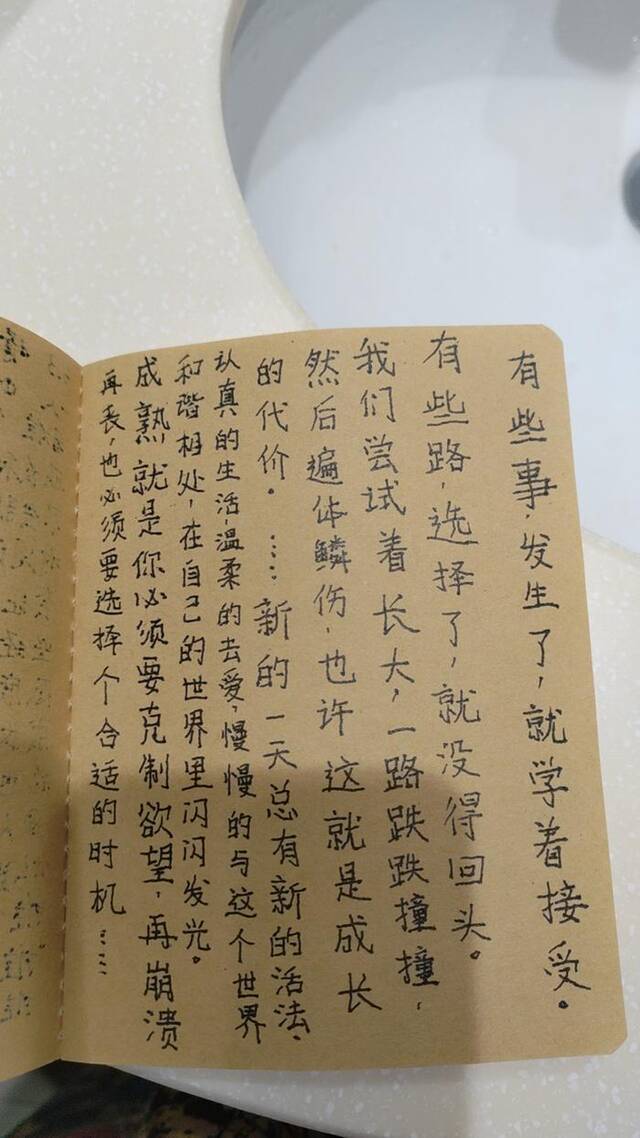 有些事，发生了，就学着接受。
有些路，选择了，就没得回头。
我们尝试着长大，一路跌跌撞撞，
然后遍体鳞伤，也许这就是成长
的代价。……新的一天总有新的活法、
认真的生活，温柔的去爱，慢慢的与这个世界
和谐相处，在自己的世界里闪闪发光。
成熟就是你必须要克制欲望，再崩溃
再丧，也必须要选择个合适的时机……